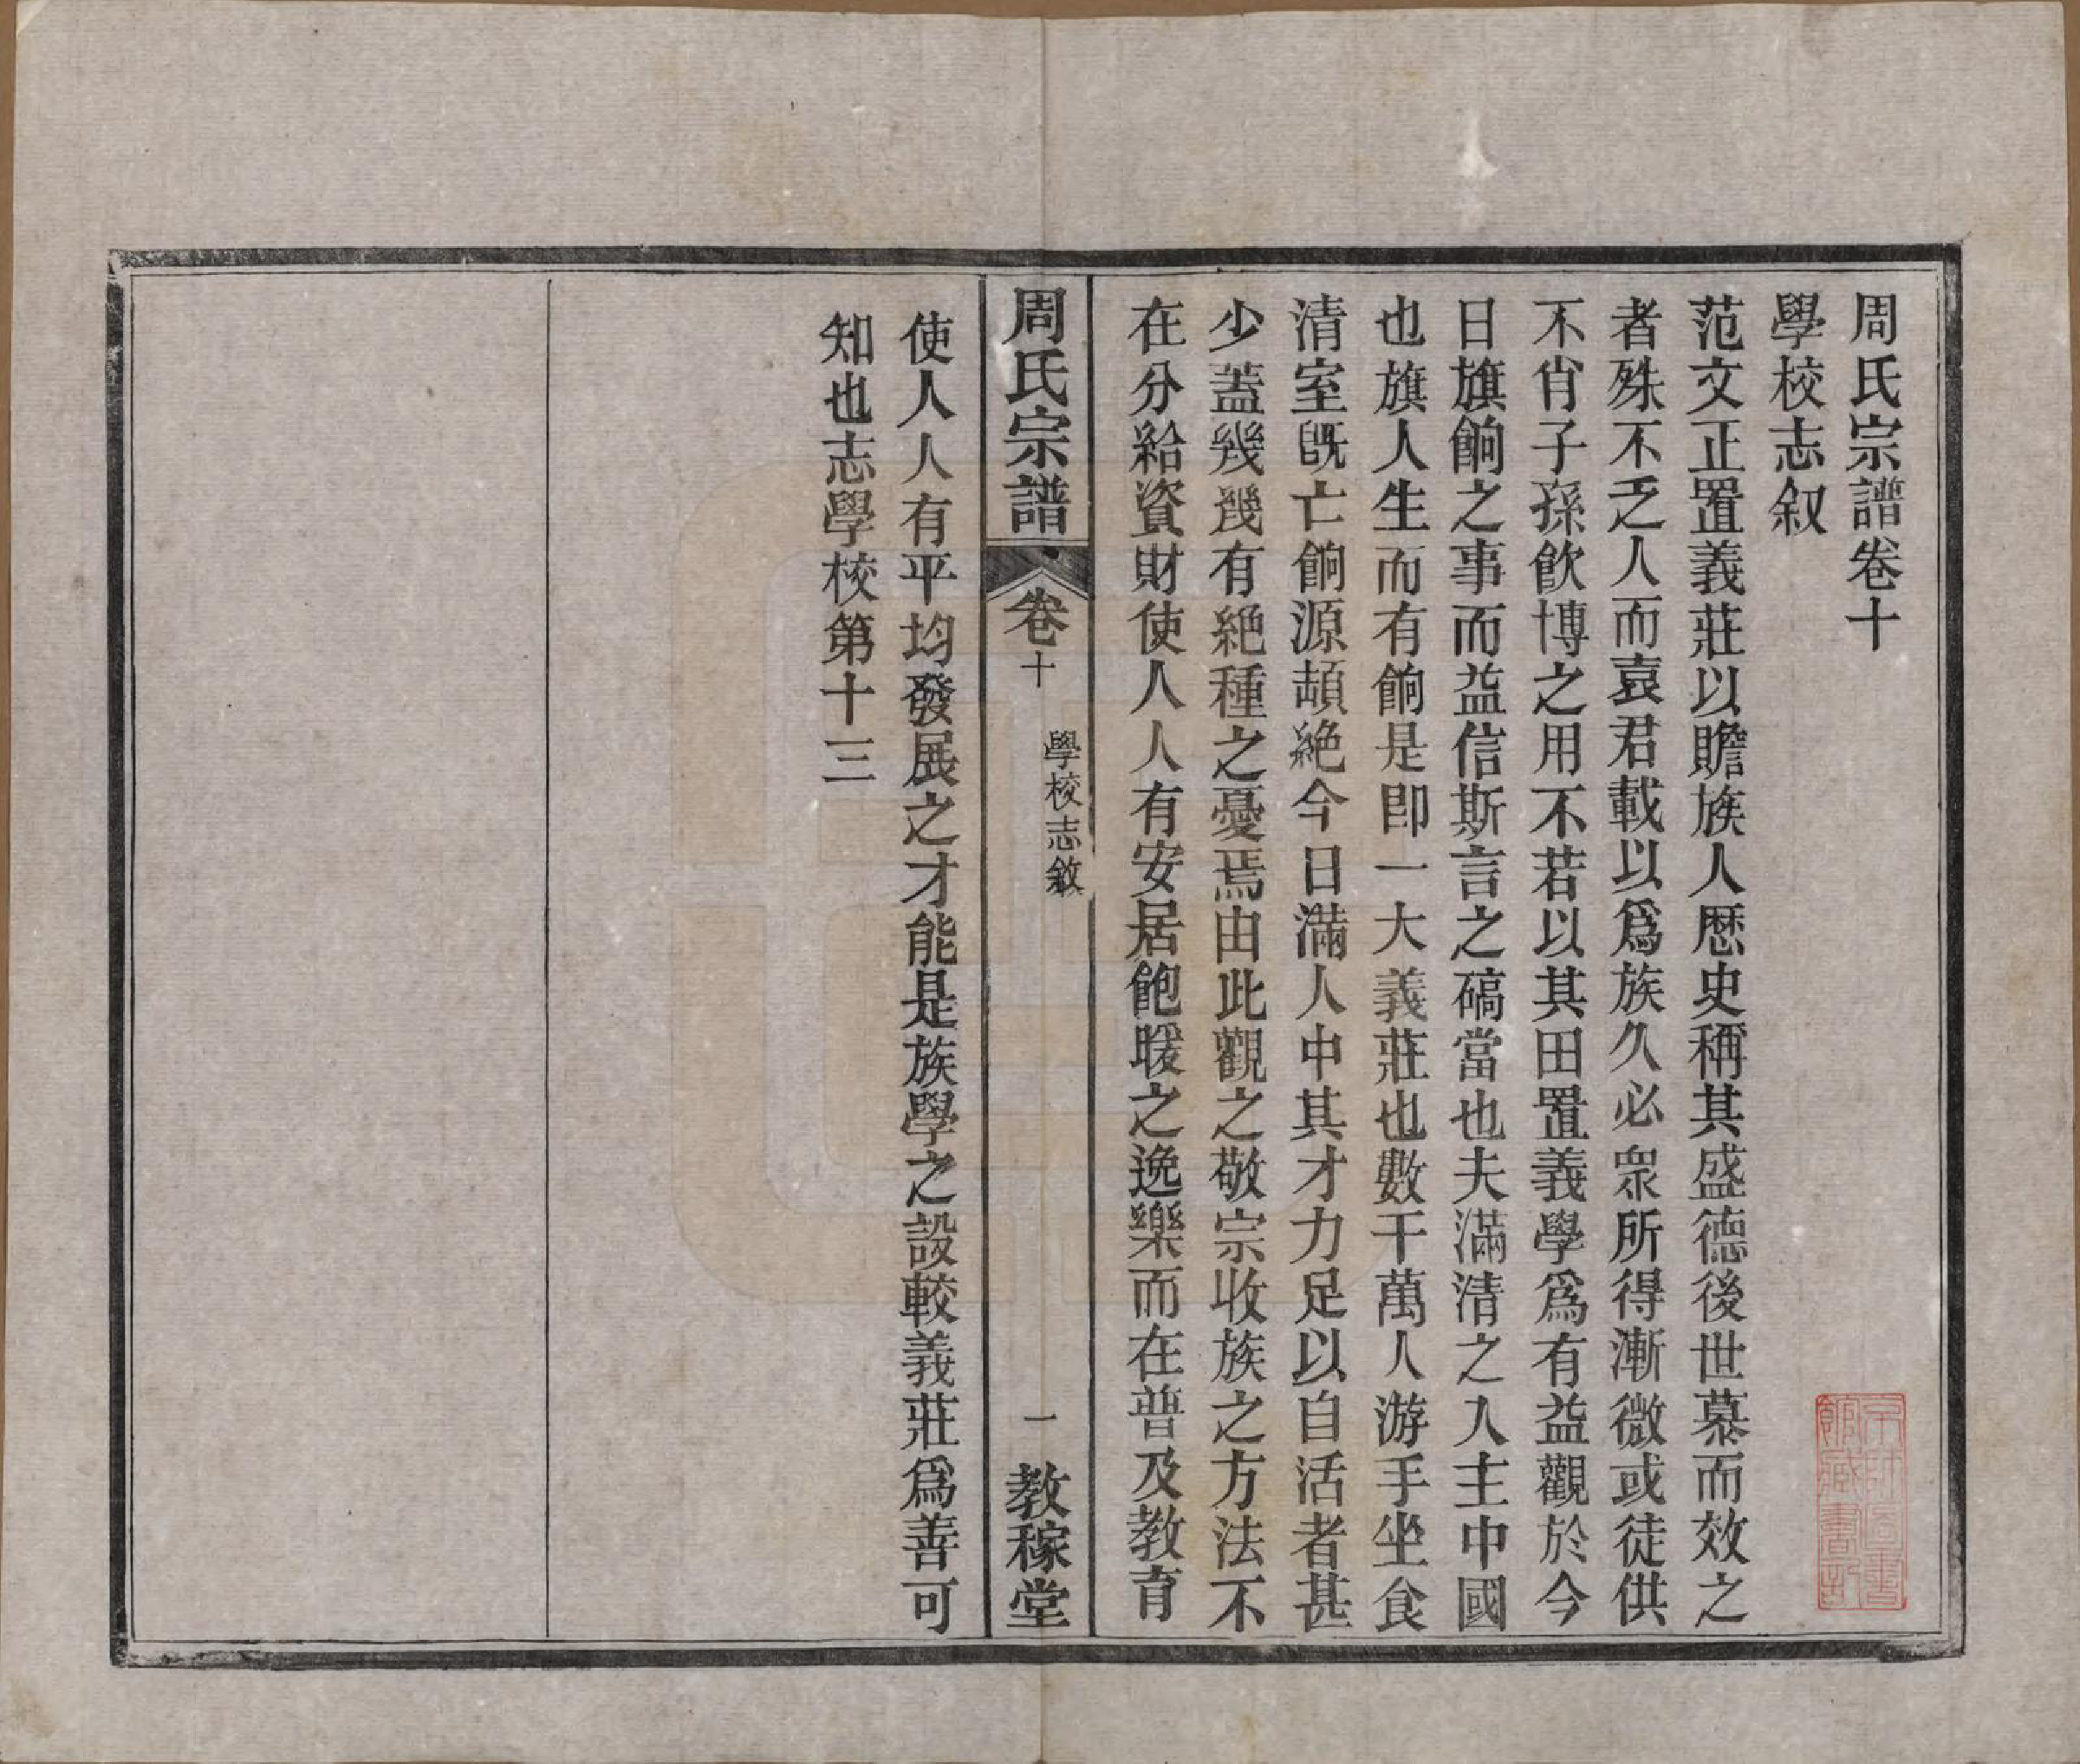 周氏宗譜卷十
學校志叙
范文正置義莊以贍族人歷史稱其盛德後世慕而效之
者殊不乏人而袁君載以爲族久必眾所得漸微或徒供
不肖子孫飲博之用不若以其田置義學爲有益觀於今
日旗餉之事而益信斯言之碻當也夫滿清之入主中國
也旗人生而有餉是即一大義莊也數千萬人游手坐食
清室旣亡餉源頡絕今日滿人中其才力足以自活者甚
少蓋幾幾有絕種之憂焉由此觀之敬宗收族之方法不
在分給資財使人人有安居飽暖之逸樂而在普及教育
周氏宗譜 卷十 學校志敘 一 教稼堂
使人人有平均發展之才能是族學之設較義莊爲善可
知也志學校第十三